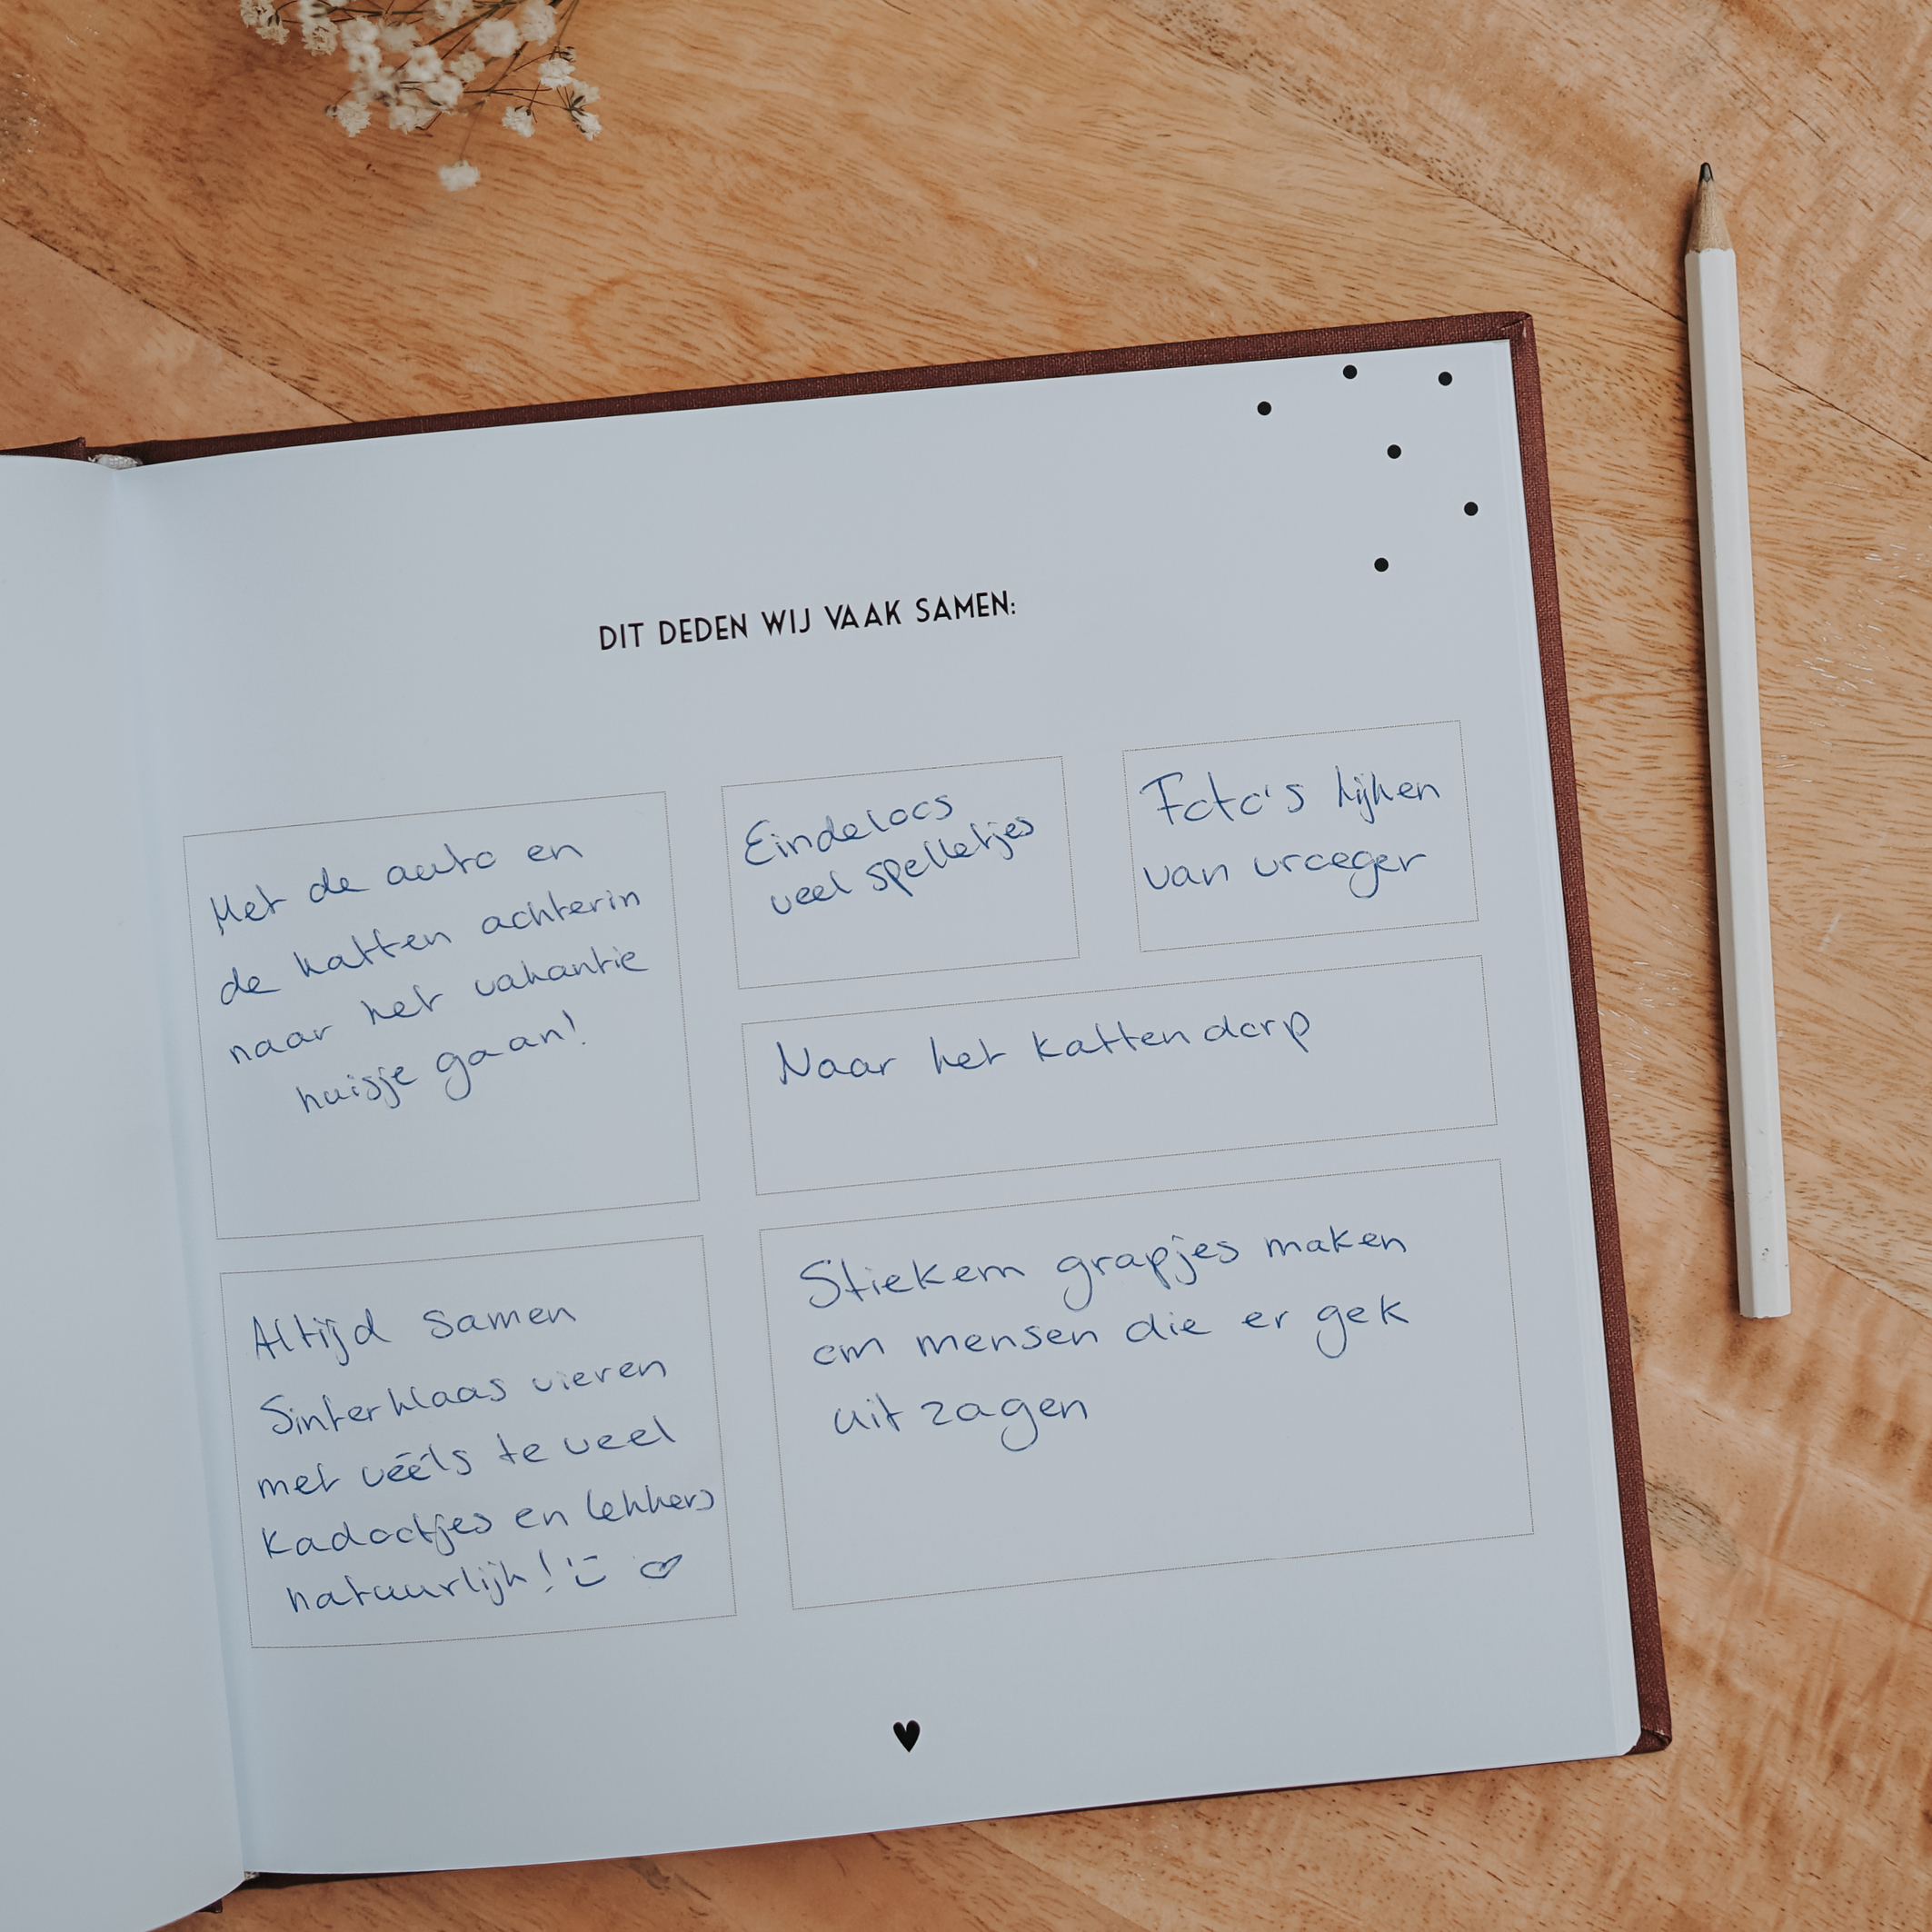 DIT DEDEN WIJ VAAK SAMEN:
Met de auto en
de katten achterin
naar het vakantie
huisje gaan!
Eindeloos
veel spelletjes
Foto's kijken
van vroeger
Naar het kattendorp
Altijd samen
Sinterklaas vieren
met véééls te veel
kadootjes en lekkers
natuurlijk! :) ♡
Stiekem grapjes maken
om mensen die er gek
uit zagen